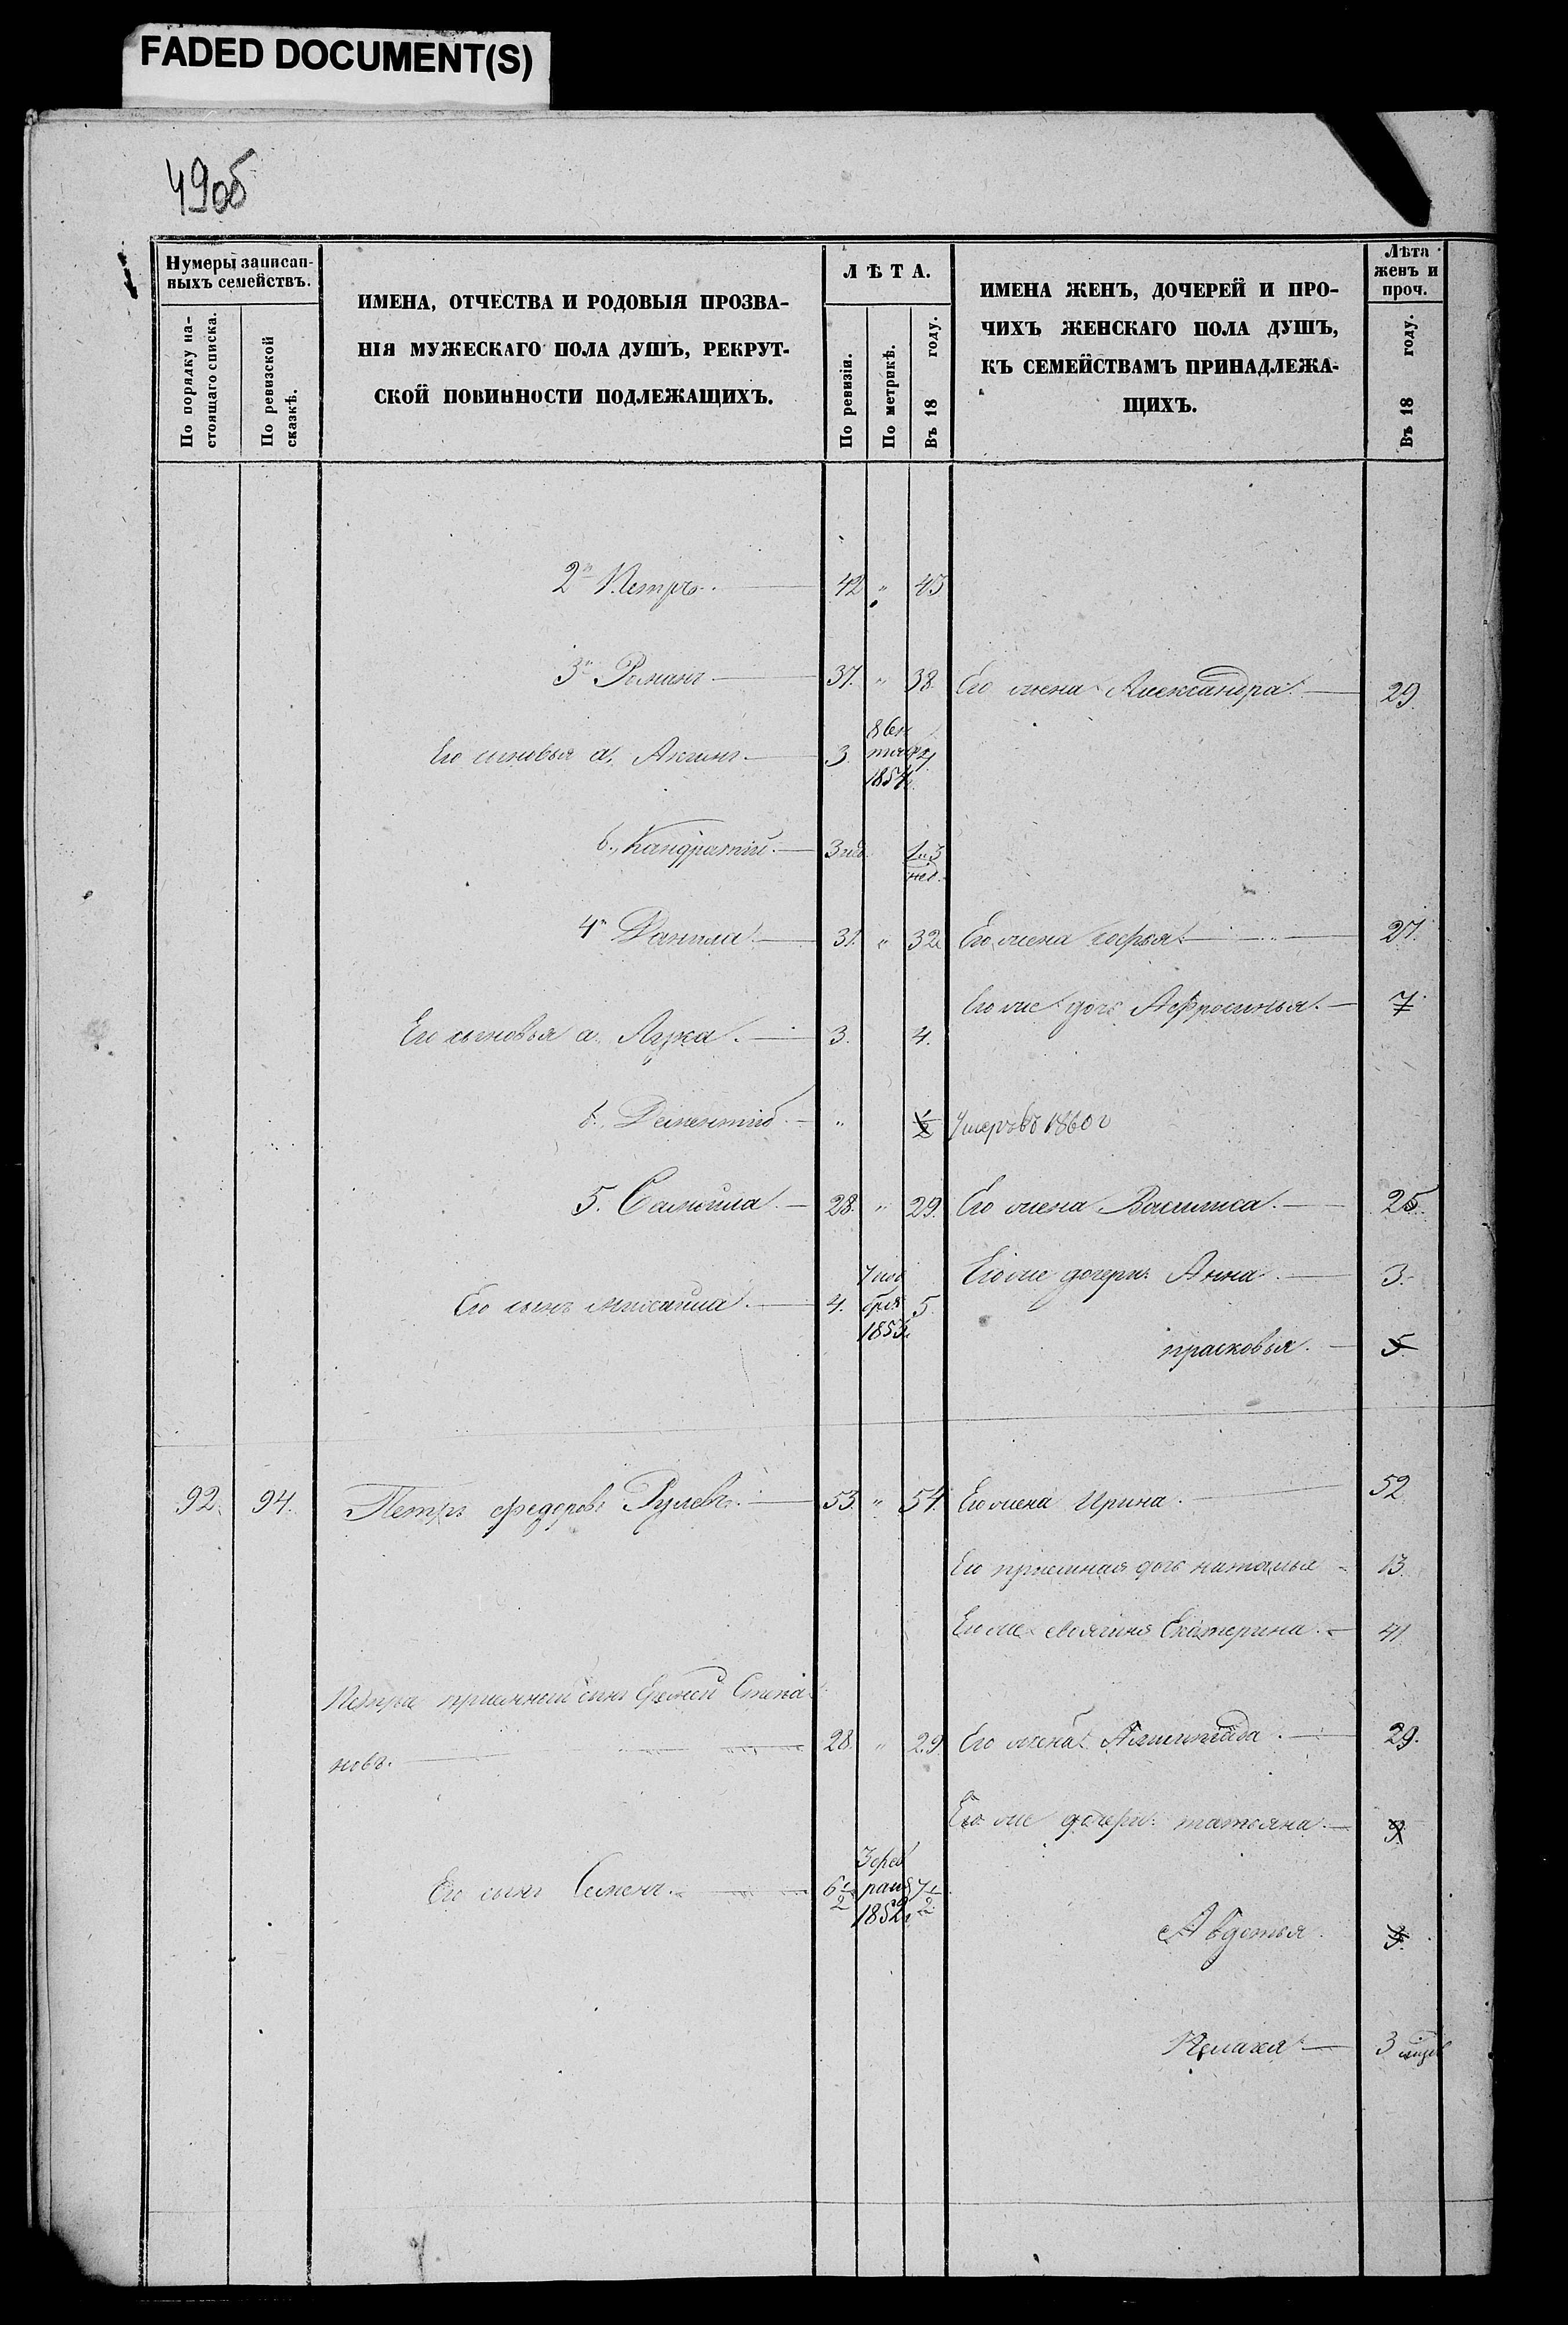 FADED DOCUMENT(S)
49об
Нумеры записан-
ныхъ семействъ.
По порядку на-
стоящаго списка.
По ревизской
сказкѣ.
ИМЕНА, ОТЧЕСТВА И РОДОВЫЯ ПРОЗВА-
НІЯ МУЖЕСКАГО ПОЛА ДУШЪ, РЕКРУТ-
СКОЙ ПОВИННОСТИ ПОДЛЕЖАЩИХЪ.
ЛѢТА.
По ревизіи.
По метрикѣ.
Въ 18 году.
ИМЕНА ЖЕНЪ, ДОЧЕРЕЙ И ПРО-
ЧИХЪ ЖЕНСКАГО ПОЛА ДУШЪ,
КЪ СЕМЕЙСТВАМЪ ПРИНАДЛЕЖА-
ЩИХЪ.
Лѣта
женъ и
проч.
Въ 18 году.
2й Петръ. 42 " 43
3й Романъ 37. " 38. Его жена Александра 29.
Его сыновья а, 3. 4
1854
б., Кандратій. 3 нед. 1 и 3
нед.
4й Данила 31. " 32 Его жена софья. 27.
Его же дочь Афросинья. 7.
Его сыновья а. Лука. 3. 4.
б., Дементій " 1/2 Умеръ въ 1860 г
5. Самойла. 28. " 29. Его жена Василиса. 25.
Его же дочери: Анна. 3.
Его сынъ михайла. 4. 7 ноя
бря 5.
1853
прасковья. 5.
92. 94. Петръ федоровъ Рулевъ. 53. " 54. Его жена Ирина. 52
Его приемная дочь наталья 13.
Его же Екатерина. 41
Петра приемный сынъ Степа-
новъ. 28. " 29 Его жена 29.
Его же дочери: татьяна 9.
Его сынъ Семенъ. 6 1/2 3 фев
раля 7 1/2
1852
Авдотья
Пелагея 3 мѣсяц